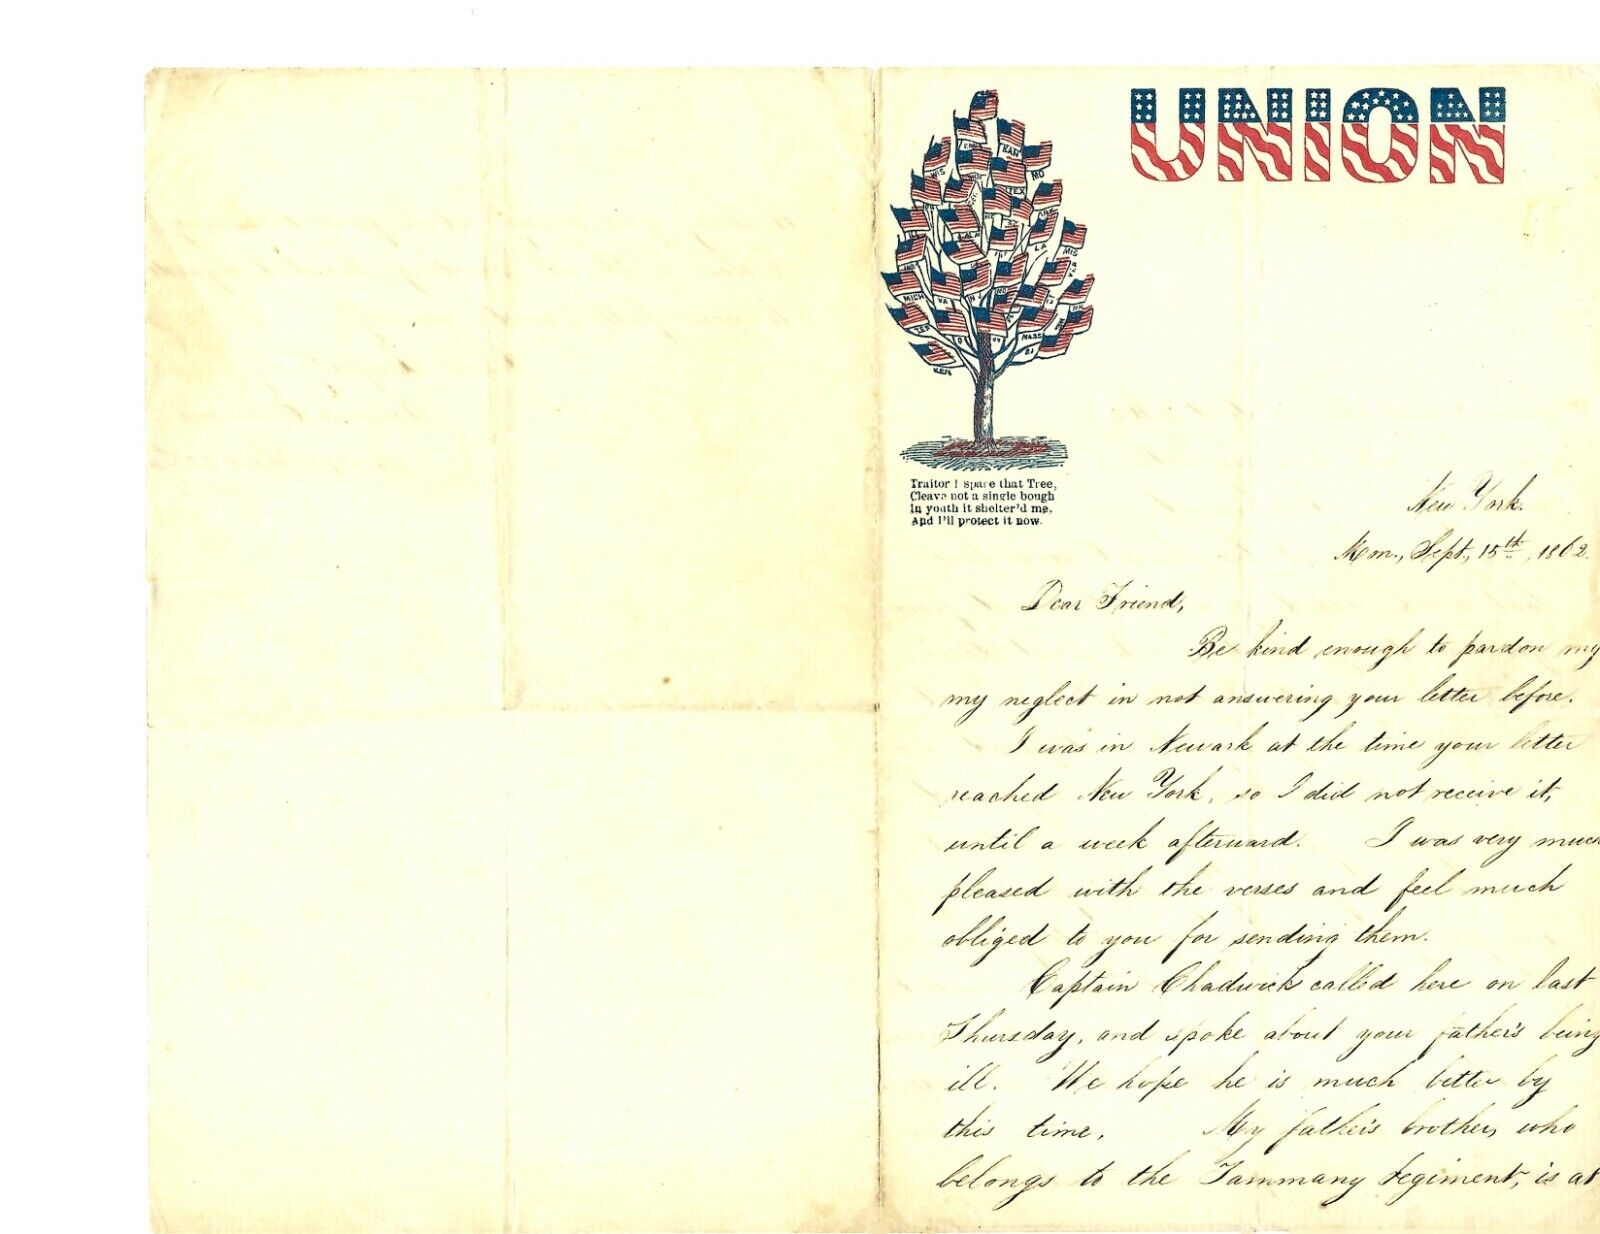 UNION
CAL
KAN
WIS
MO
TEX
ALA
LA
MIS
MICH
VA
N
MASS
RI
KEN
Traitor ! spare that Tree,
Cleave not a single bough
In youth it shelter'd me,
And I'll protect it now.
New York.
Mon., Sept., 15th, 1862.
Dear Friend,
Be kind enough to pardon my
my neglect in not answering your letter before.
I was in Newark at the time your letter
reached New York, so I did not receive it,
until a week afterward. I was very much
pleased with the verses and feel much
obliged to you for sending them.
Captain Chadwick called here on last
Thursday, and spoke about your father's being
ill. We hope he is much better by
this time. My father's brother, who
belongs to the Tammany regiment, is at